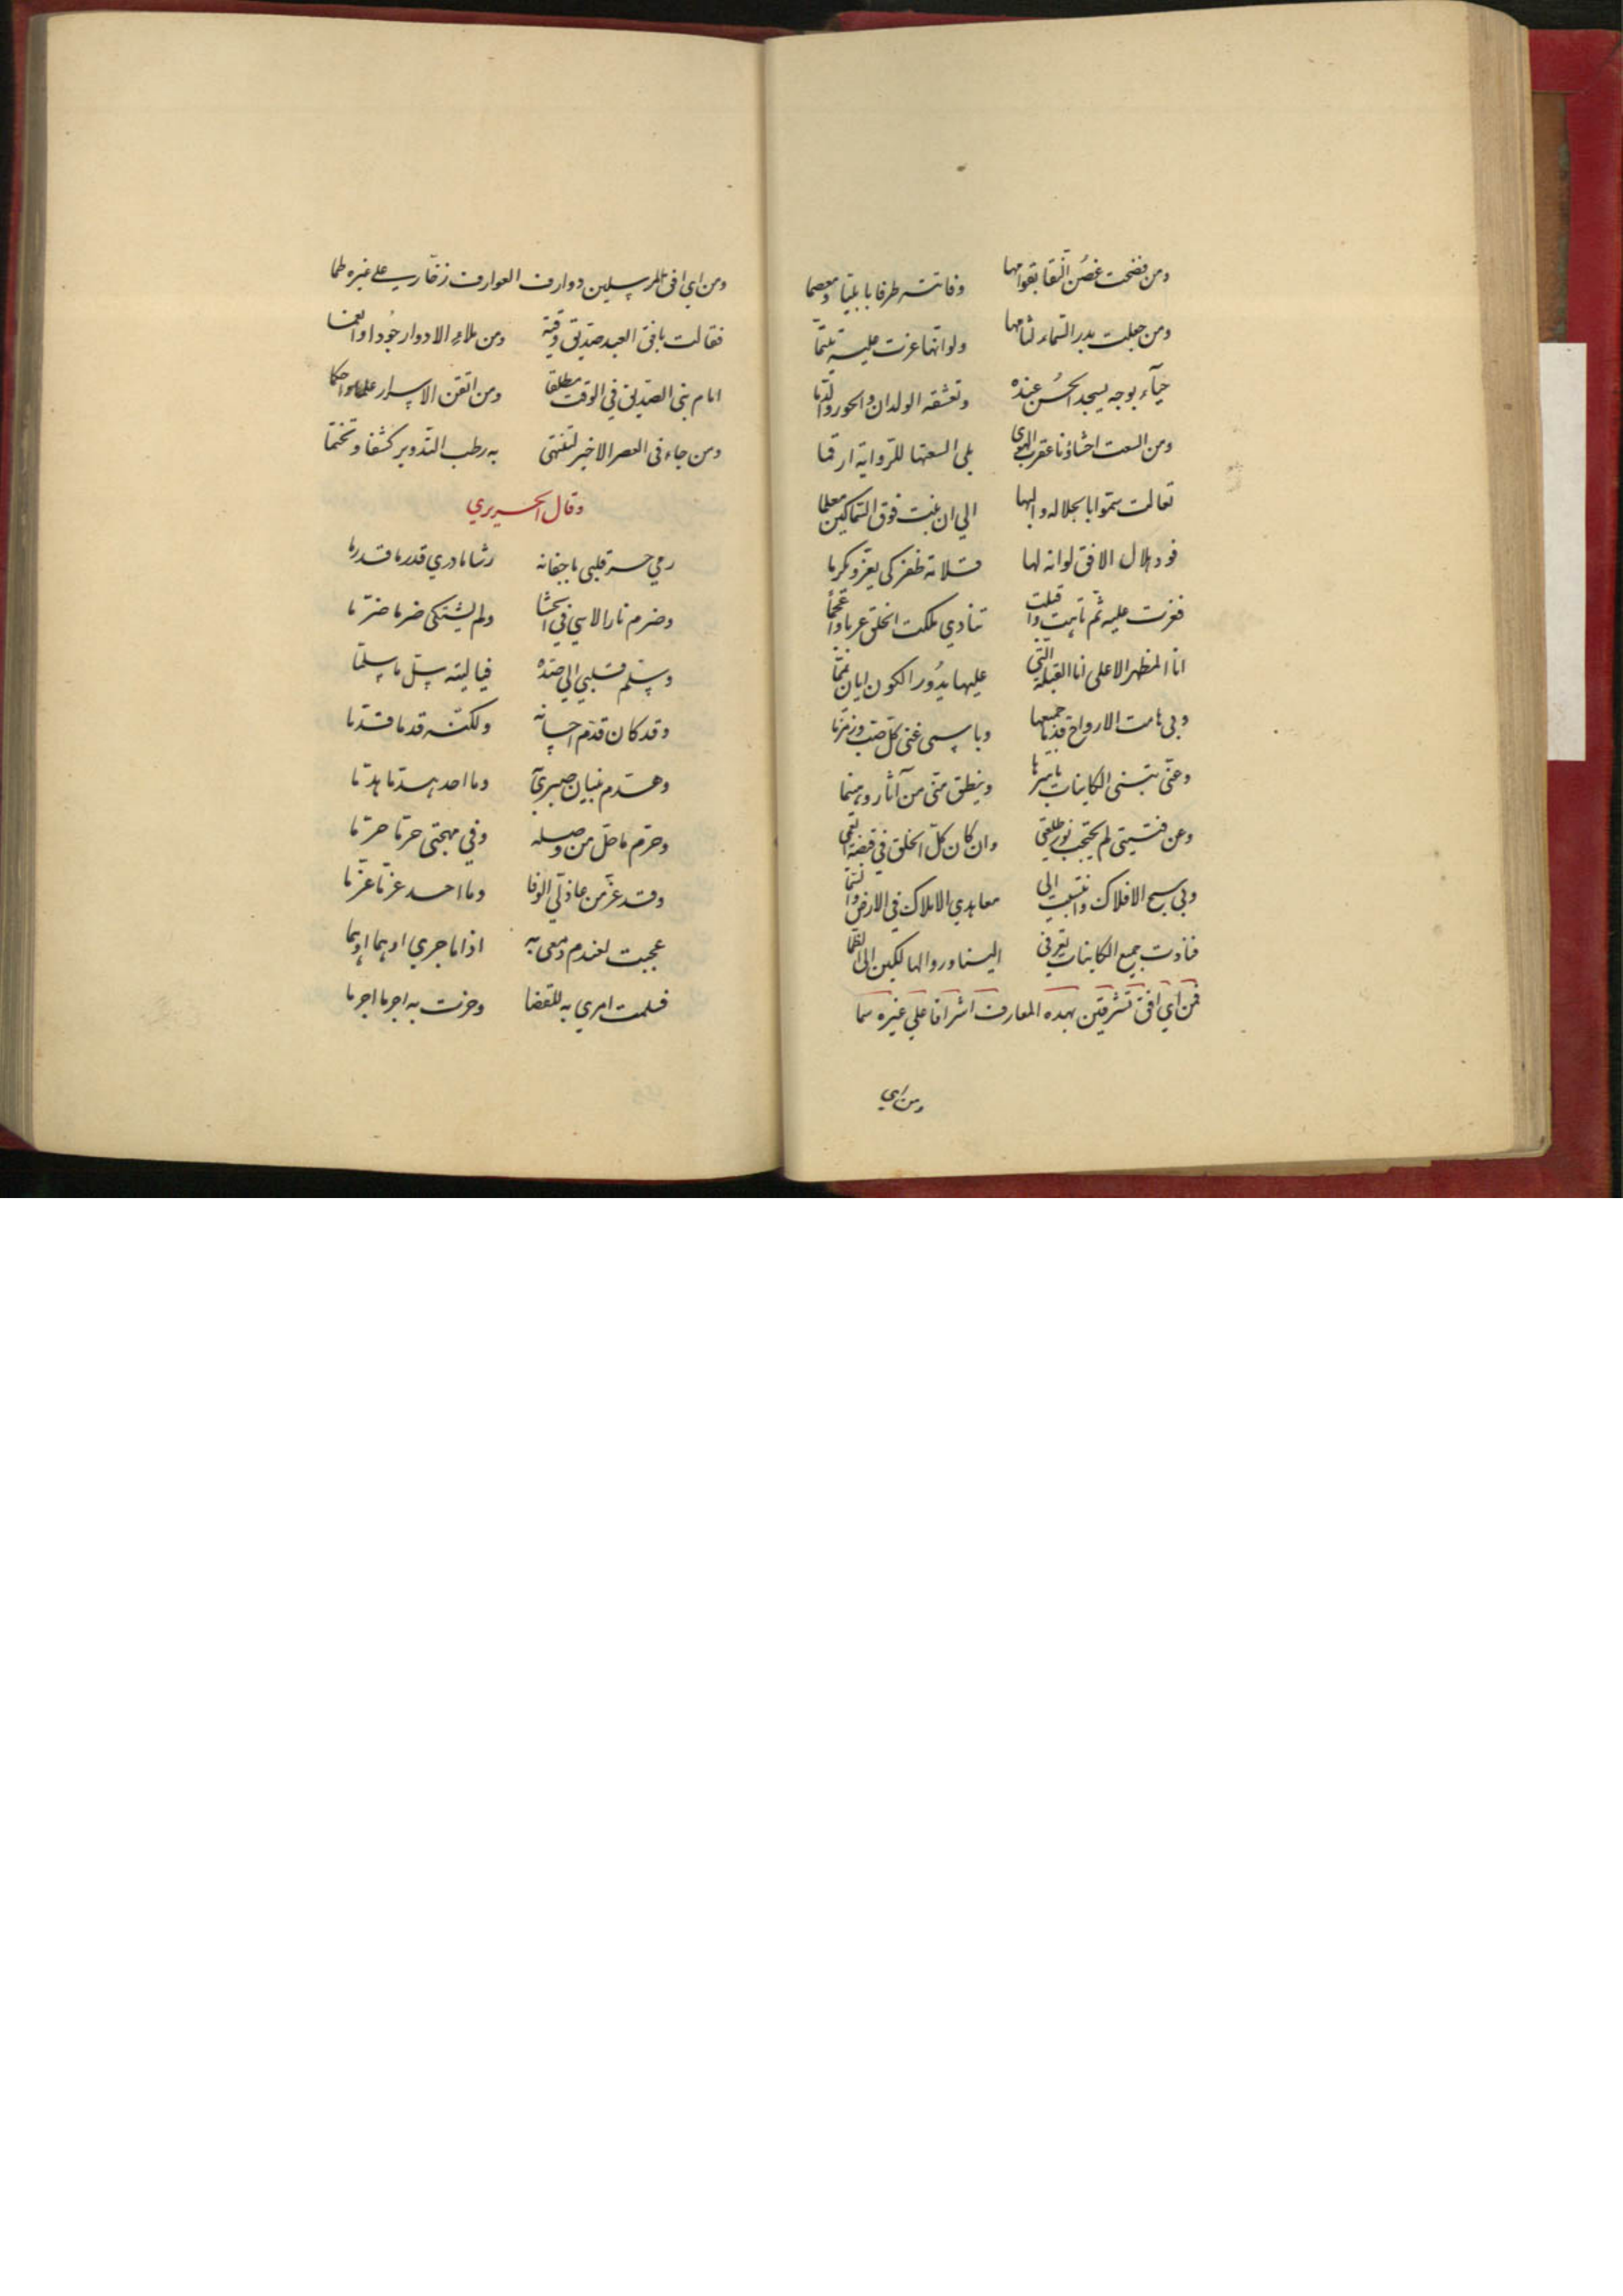 ومن فضحت غصن النقا بقوامها وفاتت طرفا بابليا ومعصما
ومن جعلت بدر السماء لثامها ولو انها عزت عليه تلثما
حيآء بوجه يسجد الحسن عنده وتعشقه الولدان والحور والدما
ومن السعت احشاؤنا عقرب الهوى بلى السعتها للرواية ارقما
تعالت سموا بالجلاله والبها الي ان غبت فوق السماكين معلما
فود هلال الافق لو انه لها قلامة ظفر كى يعز ويكرما
فعزت عليه ثم تاهت واقبلت تنادي ملكت الخلق عربا واعجما
انا المظهر الاعلى انا القبلة التي عليها يدور الكون ايان يمما
وبى هامت الارواح قدما جميعها وباسمى غنى كل صب وزمزما
وعنى تثنى الكاينات باسرها وينطق منى من آثار وهينما
وعن فتيتى لم يحتجب نور طلعتي وان كان كل الخلق في قبضة العمى
وبى سبح الافلاك وانتسبت الى معاهدي الاملاك في الارض والسما
فنادت جميع الكاينات تعرفي الينا وروا الهالكين الى الظما
فمن اي افق تشرقين بهذه المعارف اشراقا علي غيره سما
ومن اي
ومن اي افق ترسلين ووارف العوارف زخارب على غيره طما
فقالت بافق العبد صديق وقته ومن ملاء الادوار جودا وانعما
امام بنى الصديق في الوقت مطلقا ومن اتقن الاسرار علما واحكما
ومن جاء فى العصر الاخير لتنتهى به رطب التدوير كشفا وتختما
وقال الحريري
رمي حبه قلبى باجفانه رشا ما دري قدر ما قد رما
وضرم نار الاسي في الحشا ولم يشتكى ضر ما ضرما
وسلم قلبي الي صده فيا ليته سل ما سلما
وقد كان قدم احسانه ولكنه قد ما قدما
وهدم بنيان صبري وما احد هد ما هدما
وحرم ما حل من وصله وفي مهجتى حر ما حرما
وقد عز من عاذلي الوفا وما احد عز ما عزما
عجبت لعندم دمعى به اذا ما جري ادهما ادهما
فسلمت امري به للقضا وحزت به اجر ما اجرما